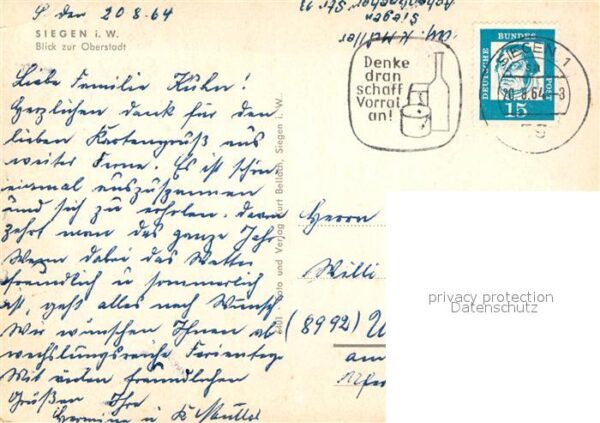 S den 20 8.64
SIEGEN i. W.
Blick zur Oberstadt
Liebe Familie Kuhn!
Herzlichen dank für den
lieben Kartengruß aus
weiter Ferne. Es ist schön
einmal auszuspannen
und sich zu erholen. davon
zehrt man das ganze Jahr
Wenn dabei das Wetter
freundlich u sommerlich
ist, geht alles nach Wunsch
Wir wünschen Ihnen ab
wechslungsreiche Ferientage
Mit vielen freundlichen
Grüßen Ihre
Hermine u K Müller
Foto und Verlag Kurt Bellach, Siegen i. W.
K Müller
Siegen
Str. 93
Denke
dran
schaff
Vorrat
an!
SIEGEN 1
20.8.64
DEUTSCHE BUNDESPOST
15
Herrn
Willi
(8992)
am
privacy protection
Datenschutz